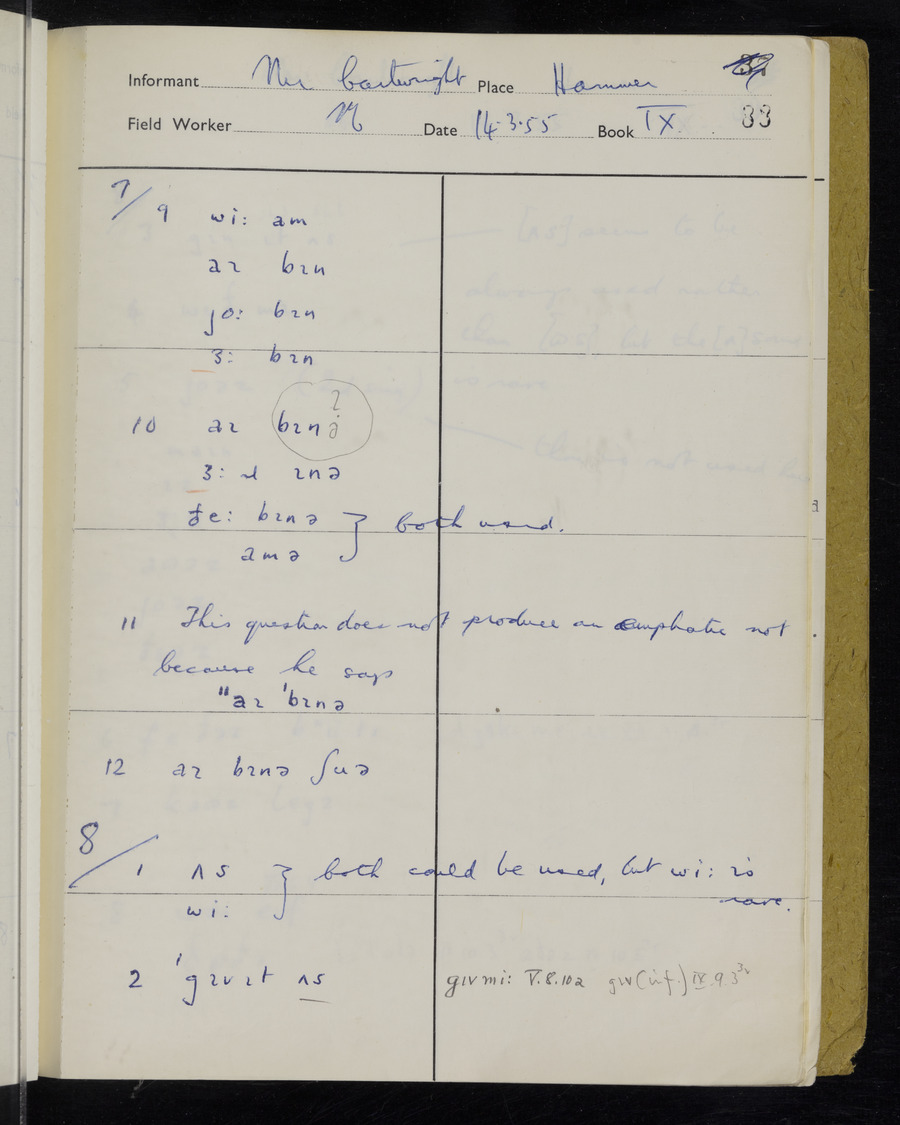 Informant Mr Cartwright Place Hanmer
Field Worker Date 14.3.55 Book IX 33
7/ 9 wi: am
aɪ bɪn
jo: bɪn
ɜ: bɪn
10 aɪ bɪnə ?
ɜ: ɪnə
ðe: bɪnə } both used.
amə
11 This question does not produce an emphatic not
because he says
"aɪ 'bɪnə
12 aɪ bɪnə ʃuə
8/ 1 ʌs } both could be used, but wi: is
wi: rare.
2 'gɪv ɪt ʌs gɪv mi: V.8.10a gɪv (inf.) IX.9.3